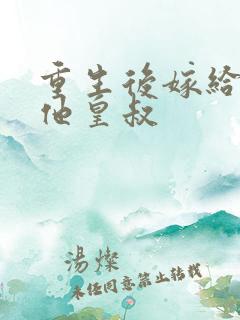 重生後嫁給
他皇叔
湯燦
未經同意禁止轉載